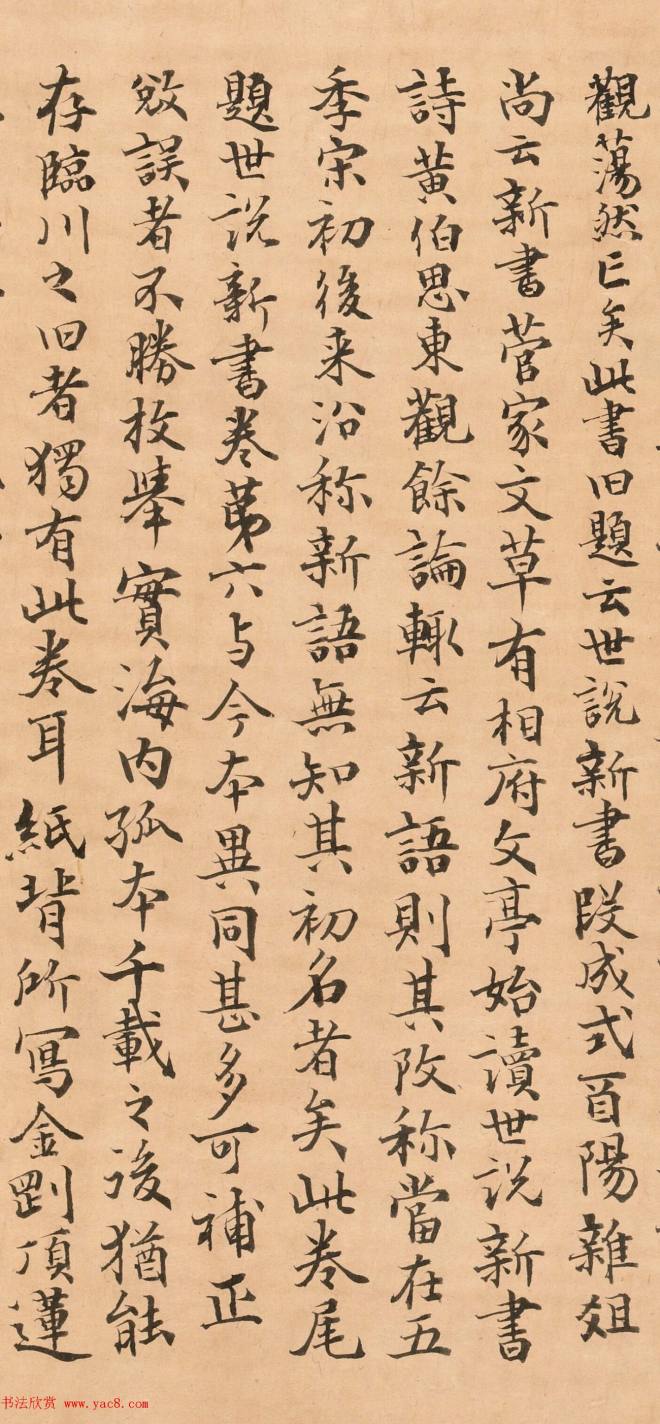 觀蕩然亡矣此書旧題云世說新書段成式酉陽雜俎
尚云新書菅家文草有相府文亭始讀世說新書
詩黃伯思東觀餘論輙云新語則其改称當在五
季宋初後来沿称新語無知其初名者矣此卷尾
題世說新書卷苐六与今本異同甚多可補正
敓誤者不勝枚舉實海内孤本千載之後猶能
存臨川之旧者獨有此卷耳紙背所寫金剛頂蓮
书法欣赏 www.yac8.com